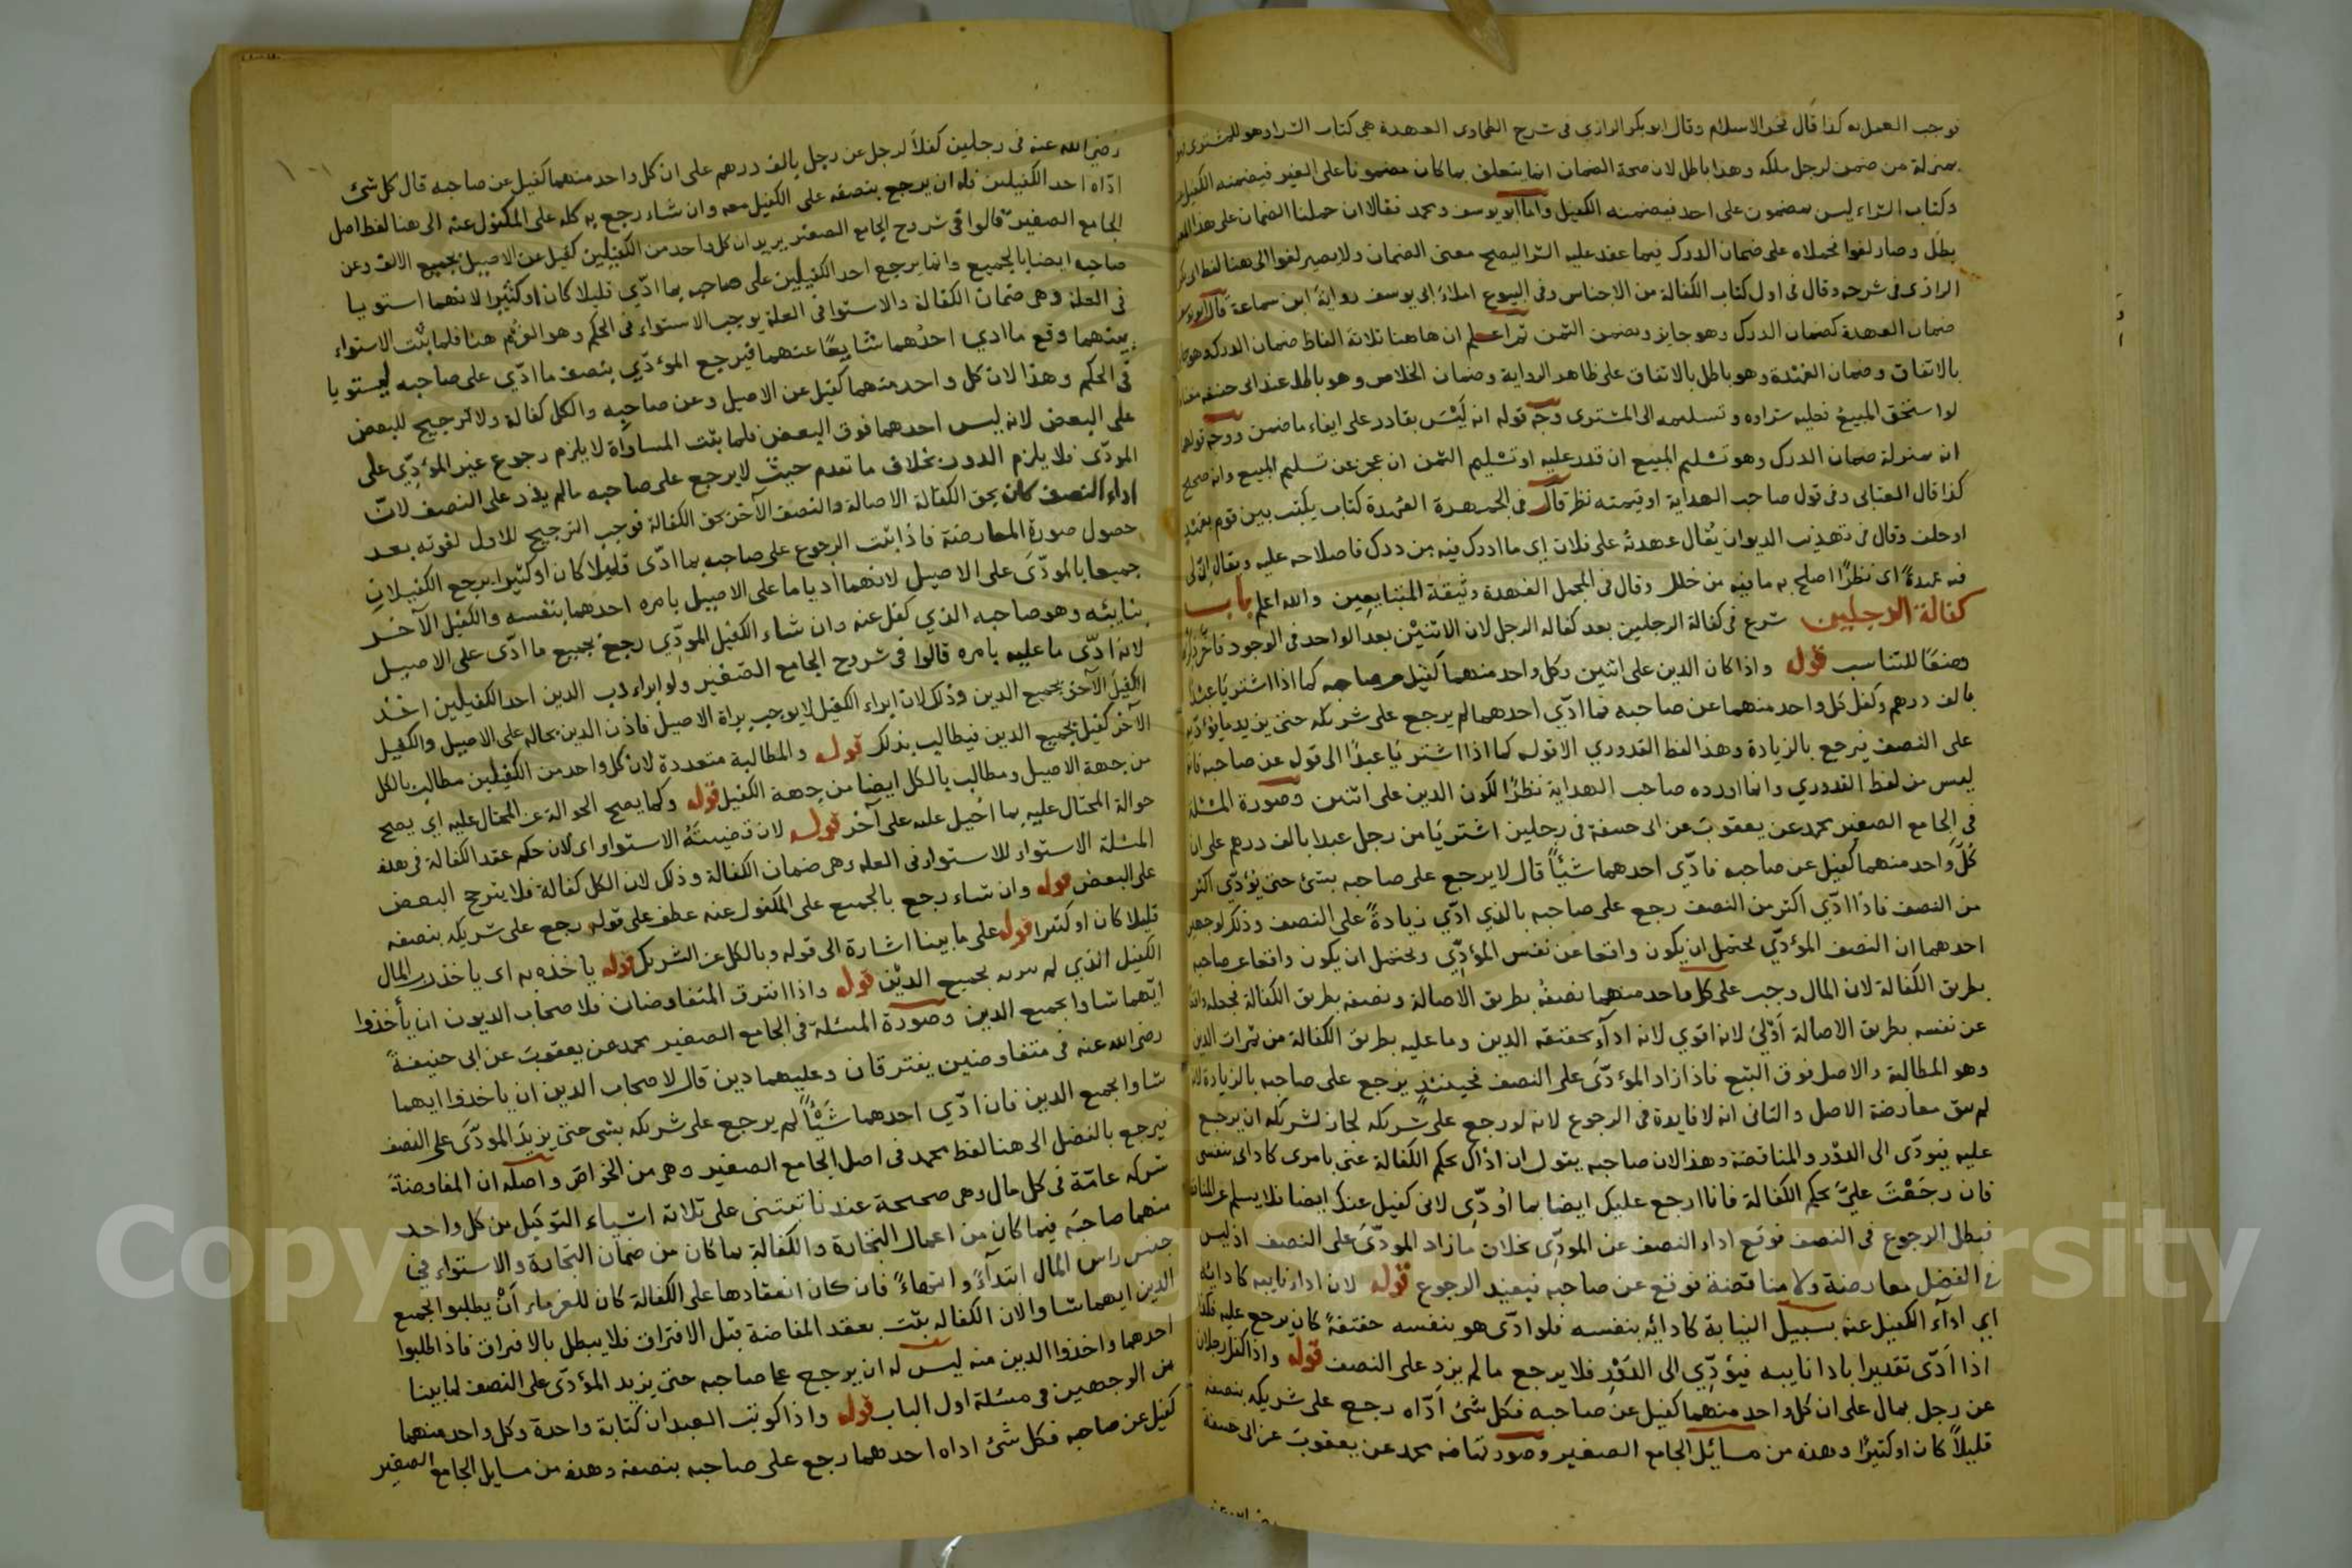 فوجب العمل به كذا قال فخر الاسلام وقال ابو بكر الرازي في شرح الطحاوي العهدة هي كتاب الشراء وهو للمشتري
بمنزلة من ضمن لرجل ملكه وهذا باطل لان صحة الضمان انما يتعلق بما كان مضمونا على الغير فيضمنه الكفيل
وكتاب الشراء ليس بمضمون على احد فيضمنه الكفيل واما ابو يوسف ومحمد فقالا ان حملنا الضمان على هذا
بطل وصار لغوا فحملاه على ضمان الدرك فيما عقد عليه الشرا ليصح معنى الضمان ولا يصير لغوا الى هنا لفظ ابي بكر
الرازي في شرحه وقال في اول كتاب الكفالة من الاجناس وفي البيوع املاء ابي يوسف رواية ابن سماعة قال ابو يوسف
ضمان العهدة كضمان الدرك وهو جايز ويضمن الثمن ثم اعلم ان هاهنا ثلاثة الفاظ ضمان الدرك وهو
بالاتفاق وضمان العهدة وهو باطل بالاتفاق على ظاهر الرواية وضمان الخلاص وهو باطل عند ابي حنيفة
لو استحق المبيع فعليه شراوه وتسليمه الى المشترى وجه قوله انه ليس بقادر على ايفاء ما ضمن ووجه قولهما
انه بمنزلة ضمان الدرك وهو تسليم المبيع ان قدر عليه او تسليم الثمن ان عجز عن تسليم المبيع وانه صحيح
كذا قال العتابي وفي قول صاحب الهداية او قيمته نظر قال في الجمهرة العهدة كتاب يكتب بين قوم
او حلف وقال في تهذيب الديوان يقال عهدته على فلان اي ما ادرك فيه من درك فاصلاحه عليه ويقال
فيه عهدة اى نظرا اصلح به ما فيه من خلل وقال في المجمل العهدة وثيقة المتبايعين والله اعلم باب
كفالة الرجلين شرع في كفالة الرجلين بعد كفاله الرجل لان الاثنين بعد الواحد في الوجود
وضعا للتناسب قوله واذا كان الدين على اثنين وكل واحد منهما كفيل عن صاحبه كما اذا اشتريا عبدا
بالف درهم وكفل كل واحد منهما عن صاحبه فما ادّي احدهما لم يرجع على شريكه حتى يزيد ما يؤدّيه
على النصف فيرجع بالزيادة وهذا لفظ القدوري الا قوله كما اذا اشتريا عبدًا الى قوله عن صاحبه
ليس من لفظ القدوري وانما اورده صاحب الهداية نظرًا لكون الدين على اثنين وصورة المسئلة
في الجامع الصغير محمد عن يعقوب عن ابى حنيفة في رجلين اشتريا من رجل عبدا بالف درهم على ان
كل واحد منهما كفيل عن صاحبه فادّي احدهما شيئًا قال لا يرجع على صاحبه بشئ حتى يؤدّي اكثر
من النصف فاذا ادّي اكثر من النصف رجع على صاحبه بالذي ادّي زيادةً على النصف وذلك لوجهين
احدهما ان النصف المؤدّي يحتمل ان يكون واقعا عن نفس المؤدّي ويحتمل ان يكون واقعا عن صاحبه
بطريق الكفالة لان المال وجب على كل واحد منهما نصفه بطريق الاصالة ونصفه بطريق الكفالة فجعله
عن نفسه بطريق الاصالة اولى لانه اقوي لانه اداء بحقيقة الدين وما عليه بطريق الكفالة من ثمرات الدين
وهو المطالبة والاصل فوق التبع فاذا زاد المؤدّى على النصف فحينئذ يرجع على صاحبه بالزيادة
لم يبق معارضة الاصل والثانى انه لا فايدة في الرجوع لانه لو رجع على شريكه لجاز لشريكه ان يرجع
عليه فيؤدّى الى الدور والمناقضة وهذا لان صاحبه يقول ان اداك بحكم الكفالة عنى بامرى كاداى بنفسى
فان رجعت عليّ بحكم الكفالة فانا ارجع عليك ايضا بما اودّى لانى كفيل عنك ايضا فلا يسلم عن
فبطل الرجوع في النصف فوقع اداء النصف عن المودّى بخلاف ما زاد المودّى على النصف اذ ليس
في الفضل معارضة ولا مناقضة فوقع عن صاحبه فيفيد الرجوع قوله لان اداء نايبه كادايه
اي اداء الكفيل عنه بسبيل النيابة كادايه بنفسه فلو ادّى هو بنفسه حقيقة كان يرجع عليه فكذا
اذا ادّى تقديرا بادا نايبه فيؤدّي الى الدّور فلا يرجع ما لم يزد على النصف قوله واذا كفل رجلان
عن رجل بمال على ان كل واحد منهما كفيل عن صاحبه فكل شئ ادّاه رجع على شريكه بنصفه
قليلاً كان او كثيرًا وهذه من مسائل الجامع الصغير وصورتها فيه محمد عن يعقوب عن ابى حنيفة
رضي الله عنه في رجلين كفلا لرجل عن رجل بالف درهم على ان كل واحد منهما كفيل عن صاحبه قال كل شئ
ادّاه احد الكفيلين فله ان يرجع بنصفه على الكفيل معه وان شاء رجع به كله على المكفول عنه الى هنا لفظ اصل
الجامع الصغير قالوا في شروح الجامع الصغير يريد ان كل واحد من الكفيلين كفيل عن الاصيل بجميع الالف وعن
صاحبه ايضا بالجميع وانما يرجع احد الكفيلين على صاحبه بما ادّي قليلا كان او كثيرا لانهما استويا
في العلة وهى ضمان الكفالة والاستوا في العلة يوجب الاستواء في الحكم وهو الغرم هنا فلما ثبت الاستواء
بينهما وقع ما ادي احدهما شايعًا عنهما فيرجع المؤدّي بنصف ما ادّي على صاحبه ليستويا
في الحكم وهذا لان كل واحد منهما كفيل عن الاصيل وعن صاحبه والكل كفالة ولا ترجيح للبعض
على البعض لانه ليس احدهما فوق البعض فلما ثبت المساواة لا يلزم رجوع غير المؤدّي على
المودّى فلا يلزم الدور بخلاف ما تقدم حيث لا يرجع على صاحبه مالم يزد على النصف لانّ
اداء النصف كان بحق الكفالة الاصالة والنصف الآخر بحق الكفالة فوجب الترجيح للاول لقوته بعد
حصول صورة المعارضة فاذا ثبت الرجوع على صاحبه بما ادّى قليلا كان او كثيرا يرجع الكفيلان
جميعا بالمودّى على الاصيل لانهما اديا ما على الاصيل بامره احدهما بنفسه والكفيل الآخر
بنايبه وهو صاحبه الذي كفل عنه وان شاء الكفيل المودّي رجع بجميع ما ادّى على الاصيل
لانه ادّى ما عليه بامره قالوا في شروح الجامع الصغير ولو ابراء رب الدين احد الكفيلين اخذ
الكفيل الآخر بجميع الدين وذلك لان ابراء الكفيل لا يوجب براة الاصيل فاذن الدين بحاله على الاصيل والكفيل
الآخر كفيل بجميع الدين فيطالب بذلك قوله والمطالبة متعددة لان كل واحد من الكفيلين مطالب بالكل
من جهة الاصيل ومطالب بالكل ايضا من جهة الكفيل قوله وكما يصح الحوالة عن المحتال عليه اي يصح
حوالة المحتال عليه بما احيل عليه على آخر قوله لان قضيته الاستواء اى لان حكم عقد الكفالة في هذه
المسئلة الاستواء للاستواء في العلة وهى ضمان الكفالة وذلك لان الكل كفالة فلا يترجح البعض
على البعض قوله وان شاء رجع بالجميع على المكفول عنه عطف على قوله رجع على شريكه بنصفه
قليلا كان او كثيرا قوله على ما بينا اشارة الى قوله وبالكل عن الشريك قوله ياخذه به اى ياخذ رب المال
الكفيل الذي لم يبره بجميع الدين قوله واذا افترق المتفاوضان فلاصحاب الديون ان يأخذوا
ايّهما شاوا بجميع الدين وصورة المسئلة في الجامع الصغير محمد عن يعقوب عن ابى حنيفة
رضى الله عنه في متفاوضين يفترقان وعليهما دين قال لاصحاب الدين ان ياخذوا ايهما
شاوا بجميع الدين فان ادّي احدهما شيئًا لم يرجع على شريكه بشى حتى يزيد المودّى على النصف
فيرجع بالفضل الى هنا لفظ محمد في اصل الجامع الصغير وهى من الخواص واصله ان المفاوضة
شركه عامّة في كل مال وهى صحيحة عندنا تبتنى على ثلاثة اشياء التوكيل من كل واحد
منهما صاحبه فيما كان من اعمال التجارة والكفالة بما كان من ضمان التجارة والاستواء في
جنس راس المال ابتداءً وانتهاءً فان كان انعقادها على الكفالة كان للغرماء أن يطلبوا لجميع
الدين ايهما شاوا لان الكفاله بثت بعقد المفاضة قبل الافتراق فلا يبطل بالافتراق فاذا طلبوا
احدهما واخذوا الدين منه ليس له ان يرجع على صاحبه حتى يزيد المؤدّى على النصف لما بينا
من الوجهين في مسئلة اول الباب قوله واذا كوتب العبدان كتابة واحدة وكل واحد منهما
كفيل عن صاحبه فكل شئ اداه احدهما رجع على صاحبه بنصفه وهذه من مسايل الجامع الصغير